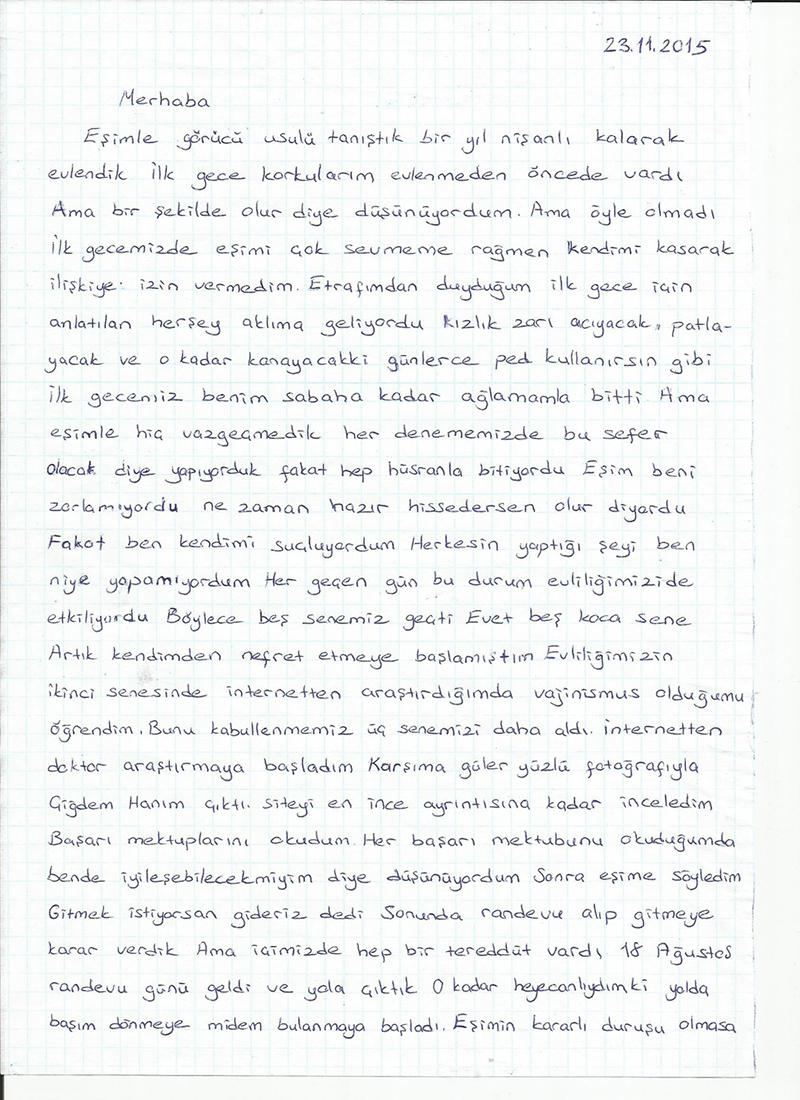 23.11.2015
Merhaba
Eşimle görücü usulü tanıştık bir yıl nişanlı kalarak
evlendik İlk gece korkularım evlenmeden öncede vardı
Ama bir şekilde olur diye düşünüyordum. Ama öyle olmadı
İlk gecemizde eşimi çok sevmeme rağmen kendimi kasarak
ilişkiye izin vermedim. Etrafımdan duyduğum ilk gece için
anlatılan herşey aklıma geliyordu kızlık zarı acıyacak, patla-
yacak ve o kadar kanayacakki günlerce ped kullanırsın gibi
İlk gecemiz benim sabaha kadar ağlamamla bitti Ama
eşimle hiç vazgeçmedik her denememizde bu sefer
olacak diye yapıyorduk fakat hep hüsranla bitiyordu Eşim beni
zorlamıyordu ne zaman hazır hissedersen olur diyordu
Fakat ben kendimi suçluyordum Herkesin yaptığı şeyi ben
niye yapamıyordum Her geçen gün bu durum evliliğimizide
etkiliyordu Böylece beş senemiz geçti Evet beş koca sene
Artık kendimden nefret etmeye başlamıştım Evliliğimizin
ikinci senesinde internetten araştırdığımda vajinismus olduğumu
öğrendim. Bunu kabullenmemiz üç senemizi daha aldı. İnternetten
doktor araştırmaya başladım Karşıma güler yüzlü fotoğrafıyla
Çiğdem Hanım çıktı. Siteyi en ince ayrıntısına kadar inceledim
Başarı mektuplarını okudum. Her başarı mektubunu okuduğumda
bende iyileşebilecekmiyim diye düşünüyordum Sonra eşime söyledim
Gitmek istiyorsan gideriz dedi Sonunda randevu alıp gitmeye
karar verdik Ama içimizde hep bir tereddüt vardı 18 Ağustos
randevu günü geldi ve yola çıktık O kadar heyecanlıydımki yolda
başım dönmeye midem bulanmaya başladı. Eşimin kararlı duruşu olmasa